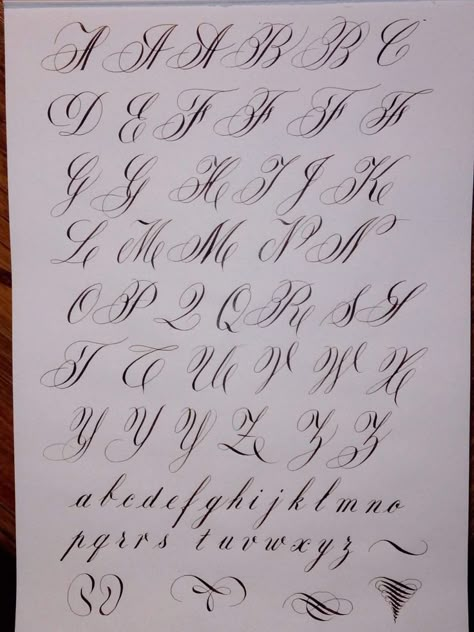 A A A B B C
D E F F F F
G G H I J K
L M M N N
O P Q Q R S S
T T U V W X
Y Y Y Z Z Z
a b c d e f g h i j k l m n o
p q r r s t u v w x y z